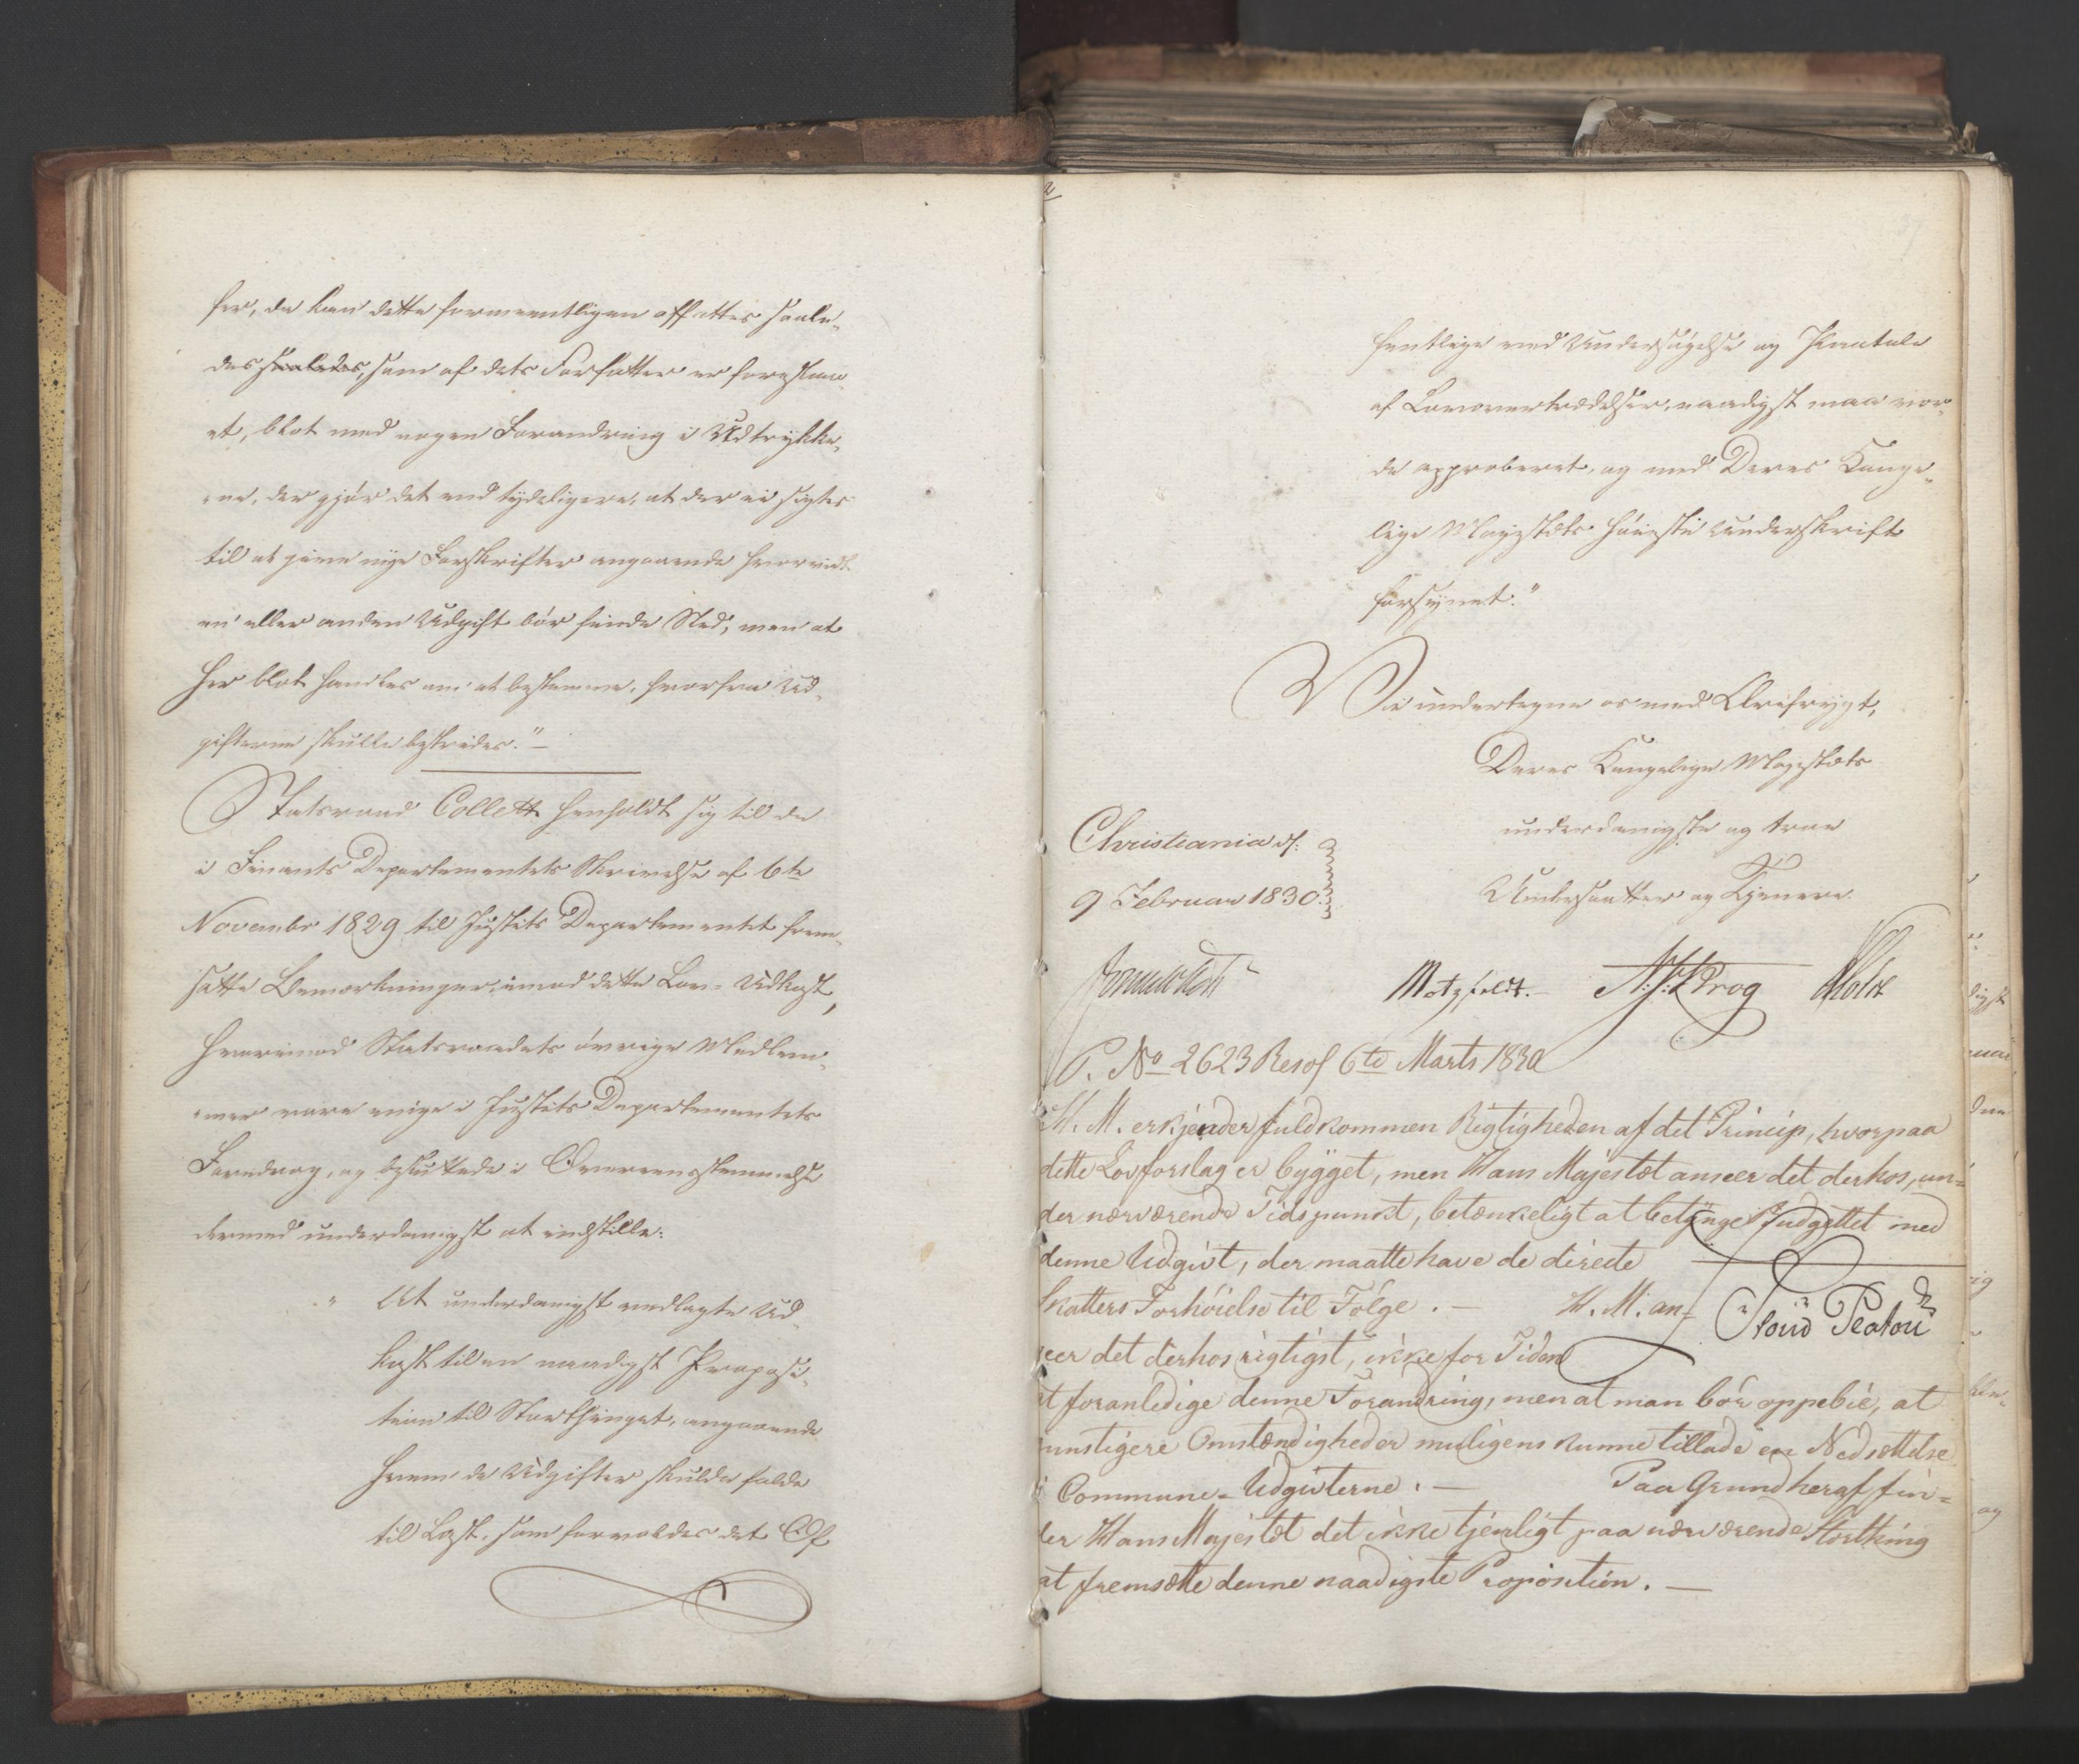 fer, da kan dette formeentligen affattes saale-
des saaledes, som af dets Forfatter er foreslaa-
et, blot med nogen Forandring i Udtrykke-
ne, der gjør det end tydeligere, at der ei sigtes
til at give nye Forskrifter angaaende hvorvidt
en eller anden Udgift bør finde Sted, men at
her blot handles om at bestemme, hvorfra Ud-
gifterne skulle bestrides." —
Statsraad Collett henholdt sig til de
i Finants Departementets Skrivelse af 6te
November 1829 til Justits Departementet frem-
satte Bemærkninger imod dette Lov-Udkast,
hvorimod Statsraadets øvrige Medlem-
mer vare enige i Justits Departementets
Foredrag, og besluttede i Overeensstemmelse
dermed underdanigst at indstille:
" At underdanigst vedlagte Ud-
kast til en naadigst Proposi-
tion til Storthinget, angaaende
hvem de Udgifter skulde falde
til Last, som forvoldes det Of-
fentlige ved Undersøgelse og Paatale
af Lovovertrædelser, naadigst maa vor-
de approberet, og med Deres Konge-
lige Majestæts høieste Underskrift
forsynet."
Vi undertegne os med Ærefrygt,
Deres Kongelige Majestæts
underdanigste og troe
Undersaatter og Tjenere.
Christiania d:
9 Februar 1830.
Motzfeldt. N: J: Krog Holst
P. No 2623 Resol 6te Marts 1830
H. M. erkjender fuldkommen Rigtigheden af det Princip, hvorpaa
dette Lovforslag er bygget, men Hans Majestæt anseer det derhos, un=
der nærværende Tidspunkt, betænkeligt at betynge Budgettet med
denne Udgivt, der maatte have de directe
Skatters Forhöielse til Fölge. — H. M. an-
seer det derhos rigtigst, ikke for Tiden
at foranledige denne Forandring, men at man bör oppebie, at
gunstigere Omstændigheder muligens kunne tillade en Nedsættelse
i Commune-Udgivterne. — Paa Grund heraf fin=
der Hans Majestæt det ikke tjenligt paa nærværende Storthing
at fremsætte denne naadigste Proposition. —